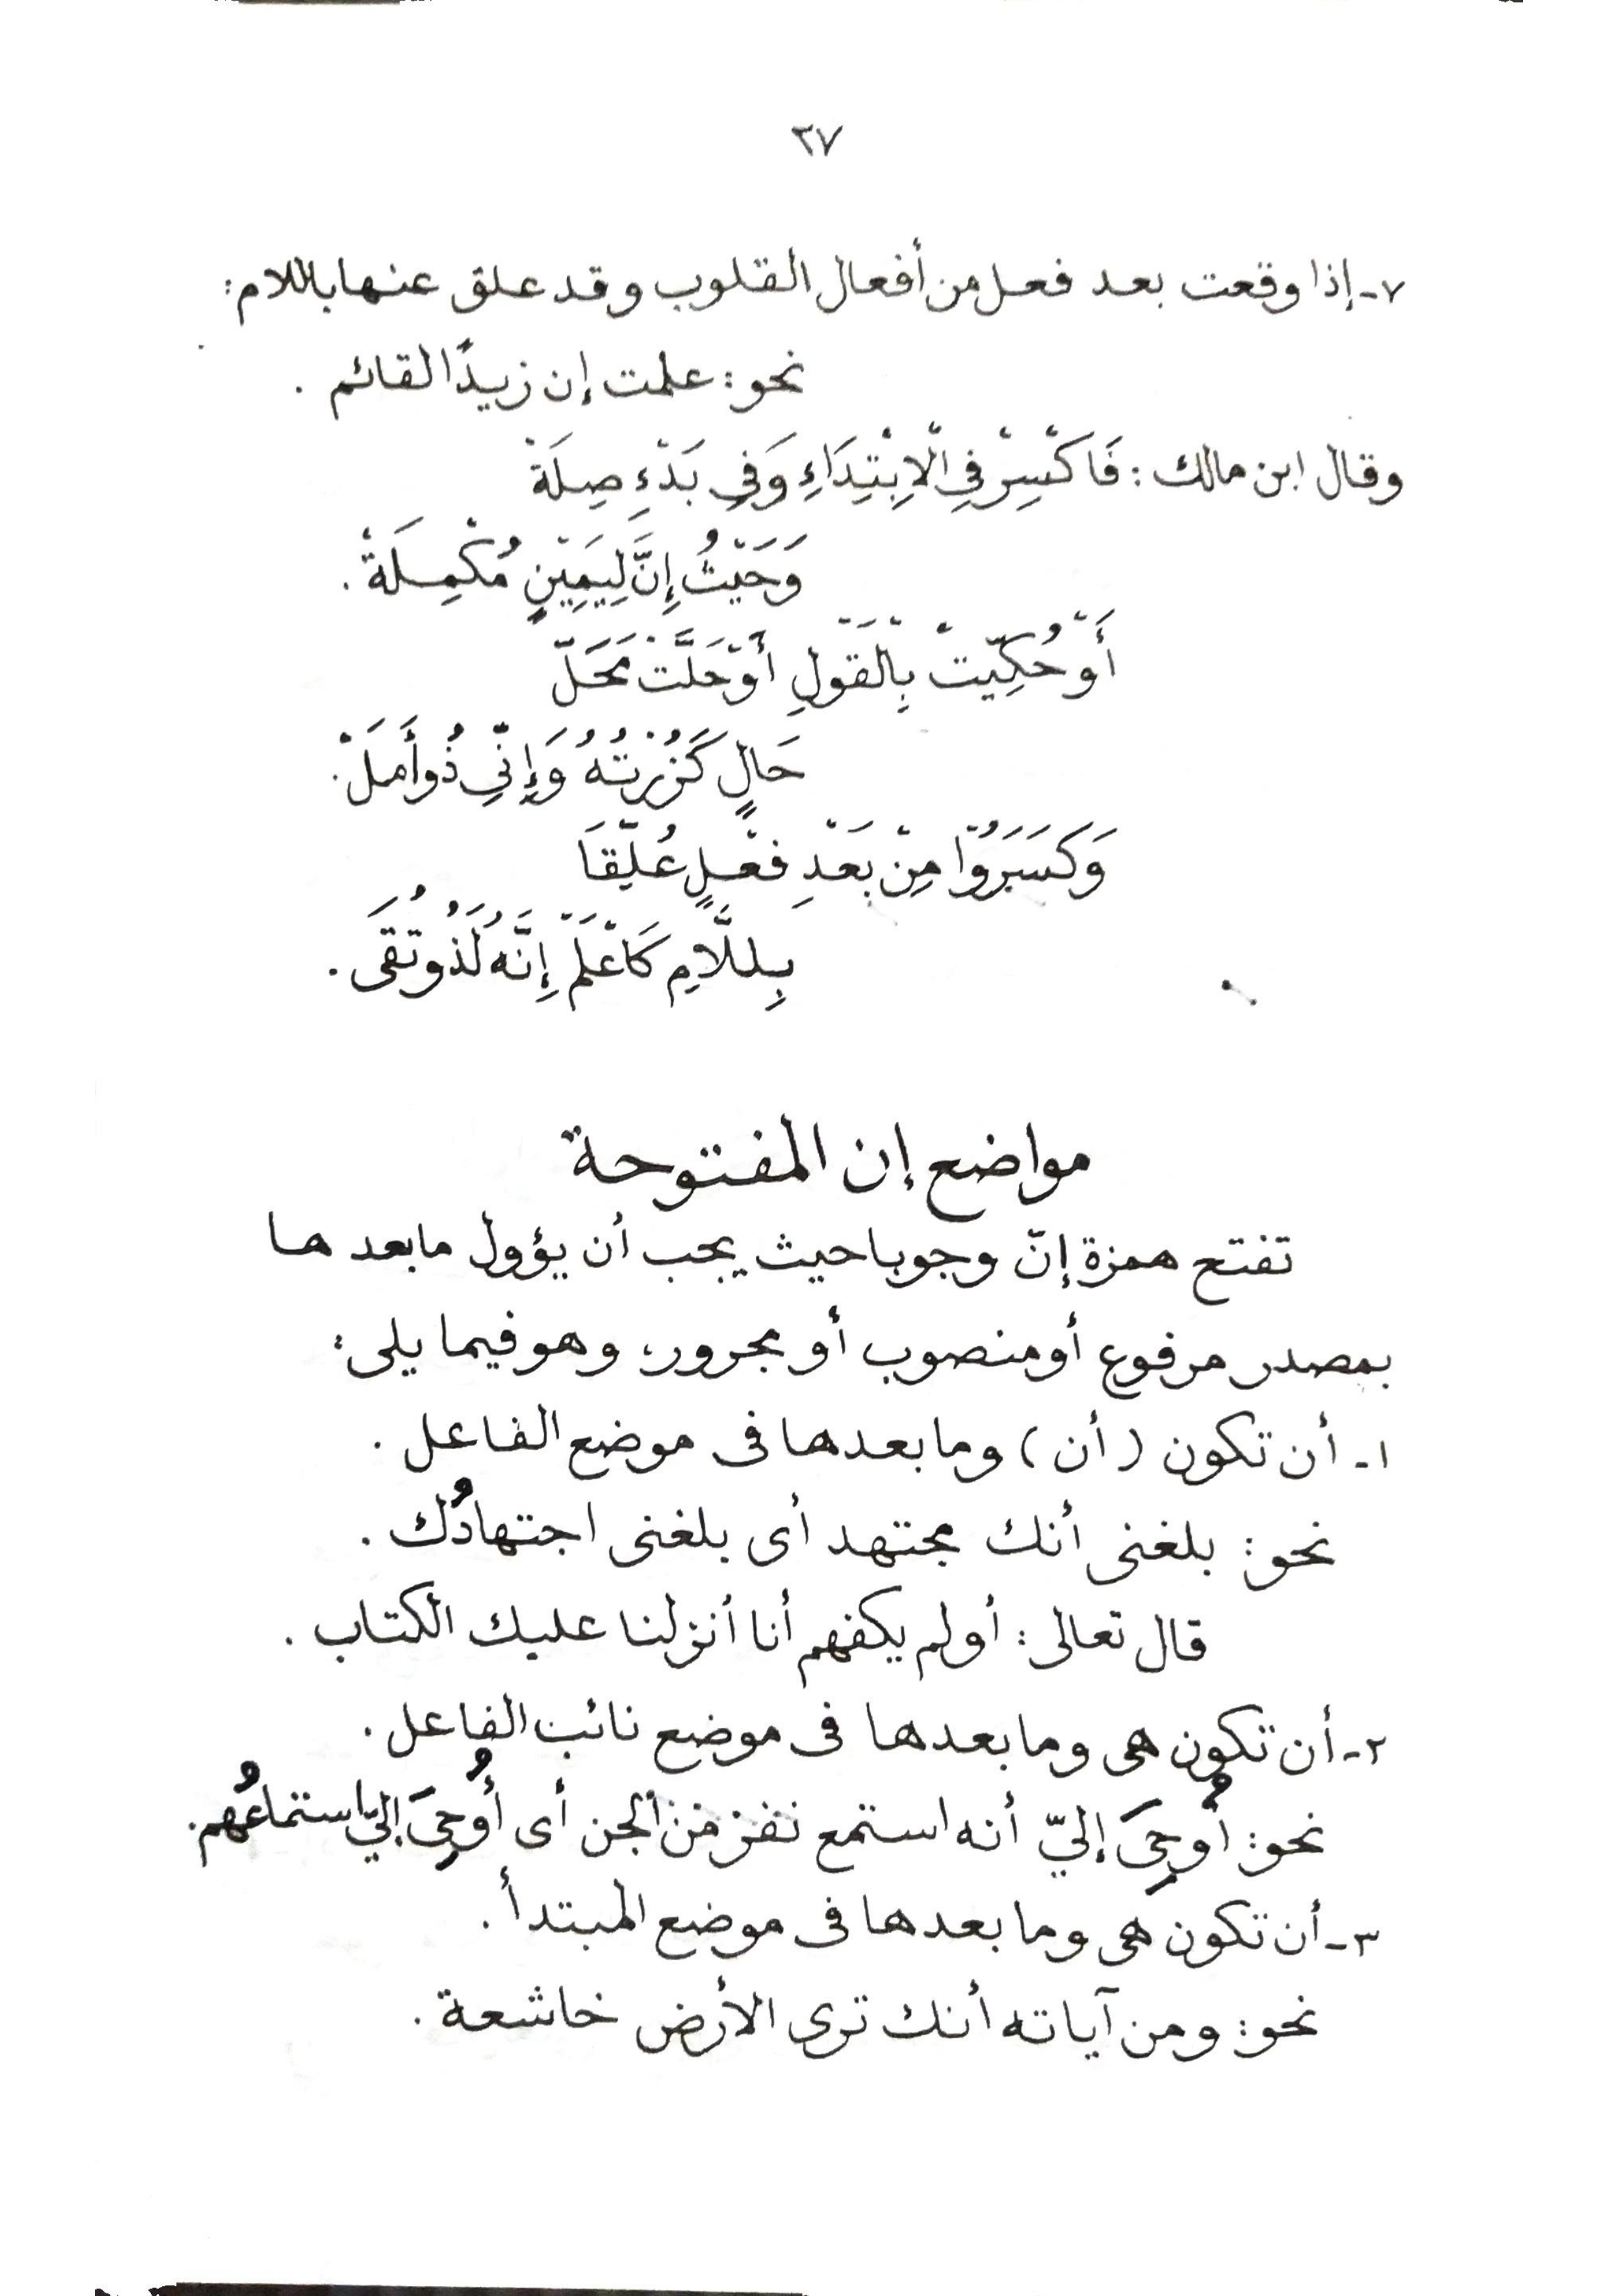 ٢٧
٧- إذا وقعت بعد فعل من أفعال القلوب وقد علق عنها باللام:
نحو: علمت إن زيدًا القائم .
وقال ابن مالك: فَاكْسِرْ فِي الْاِبْتِدَاءِ وَفِي بَدْءِ صِلَةْ
وَحَيْثُ إِنَّ لِيَمِيْنٍ مُكْمِلَةْ .
أَوْ حُكِّيَتْ بِالْقَوْلِ أَوْ حَلَّتْ مَحَلّْ
حَالٍ كَزُرْتُهُ وَإِنِّي ذُو أَمَلْ .
وَكَسَرُوْا مِنْ بَعْدِ فِعْلٍ عُلِّقَا
بِللَّامِ كَاعْلَمْ إِنَّهُ لَذُو تُقَى .
مواضع إن المفتوحة
تفتح همزة إنّ وجوبا حيث يجب أن يؤول ما بعد ها
بمصدر مرفوع أو منصوب أو مجرور، وهو فيما يلى:
١- أن تكون (أن) وما بعدها فى موضع الفاعل .
نحو: بلغنى أنك مجتهد أى بلغنى اجتهادُك .
قال تعالى: أولم يكفهم أنا أنزلنا عليك الكتاب .
٢- أن تكون هى وما بعدها فى موضع نائب الفاعل .
نحو: أُوحِىَ إليّ أنه استمع نفر من الجن أى أُوحِىَ إليّ استماعُهم .
٣- أن تكون هى وما بعدها فى موضع المبتدأ .
نحو: ومن آياته أنك ترى الأرض خاشعة .